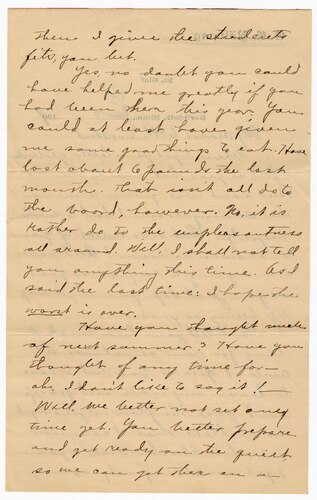 then I give the students
fits, you bet.
Yes, no doubt you could
have helped me greatly if you
had been then this year. You
could at least have given
me some good things to eat. Have
lost about 6 pounds the last
month. That isn't all do to
the board, however. No, it is
rather do to the unpleasantness
all around. Well, I shall not tell
you anything this time. As I
said the last time: I hope the
worst is over.
Have you thought much
of next summer? Have you
thought of any time for—
oh, I don't like to say it!
Well, we better not set any
time yet. You better prepare
and get ready on the quiet
so we can get there on